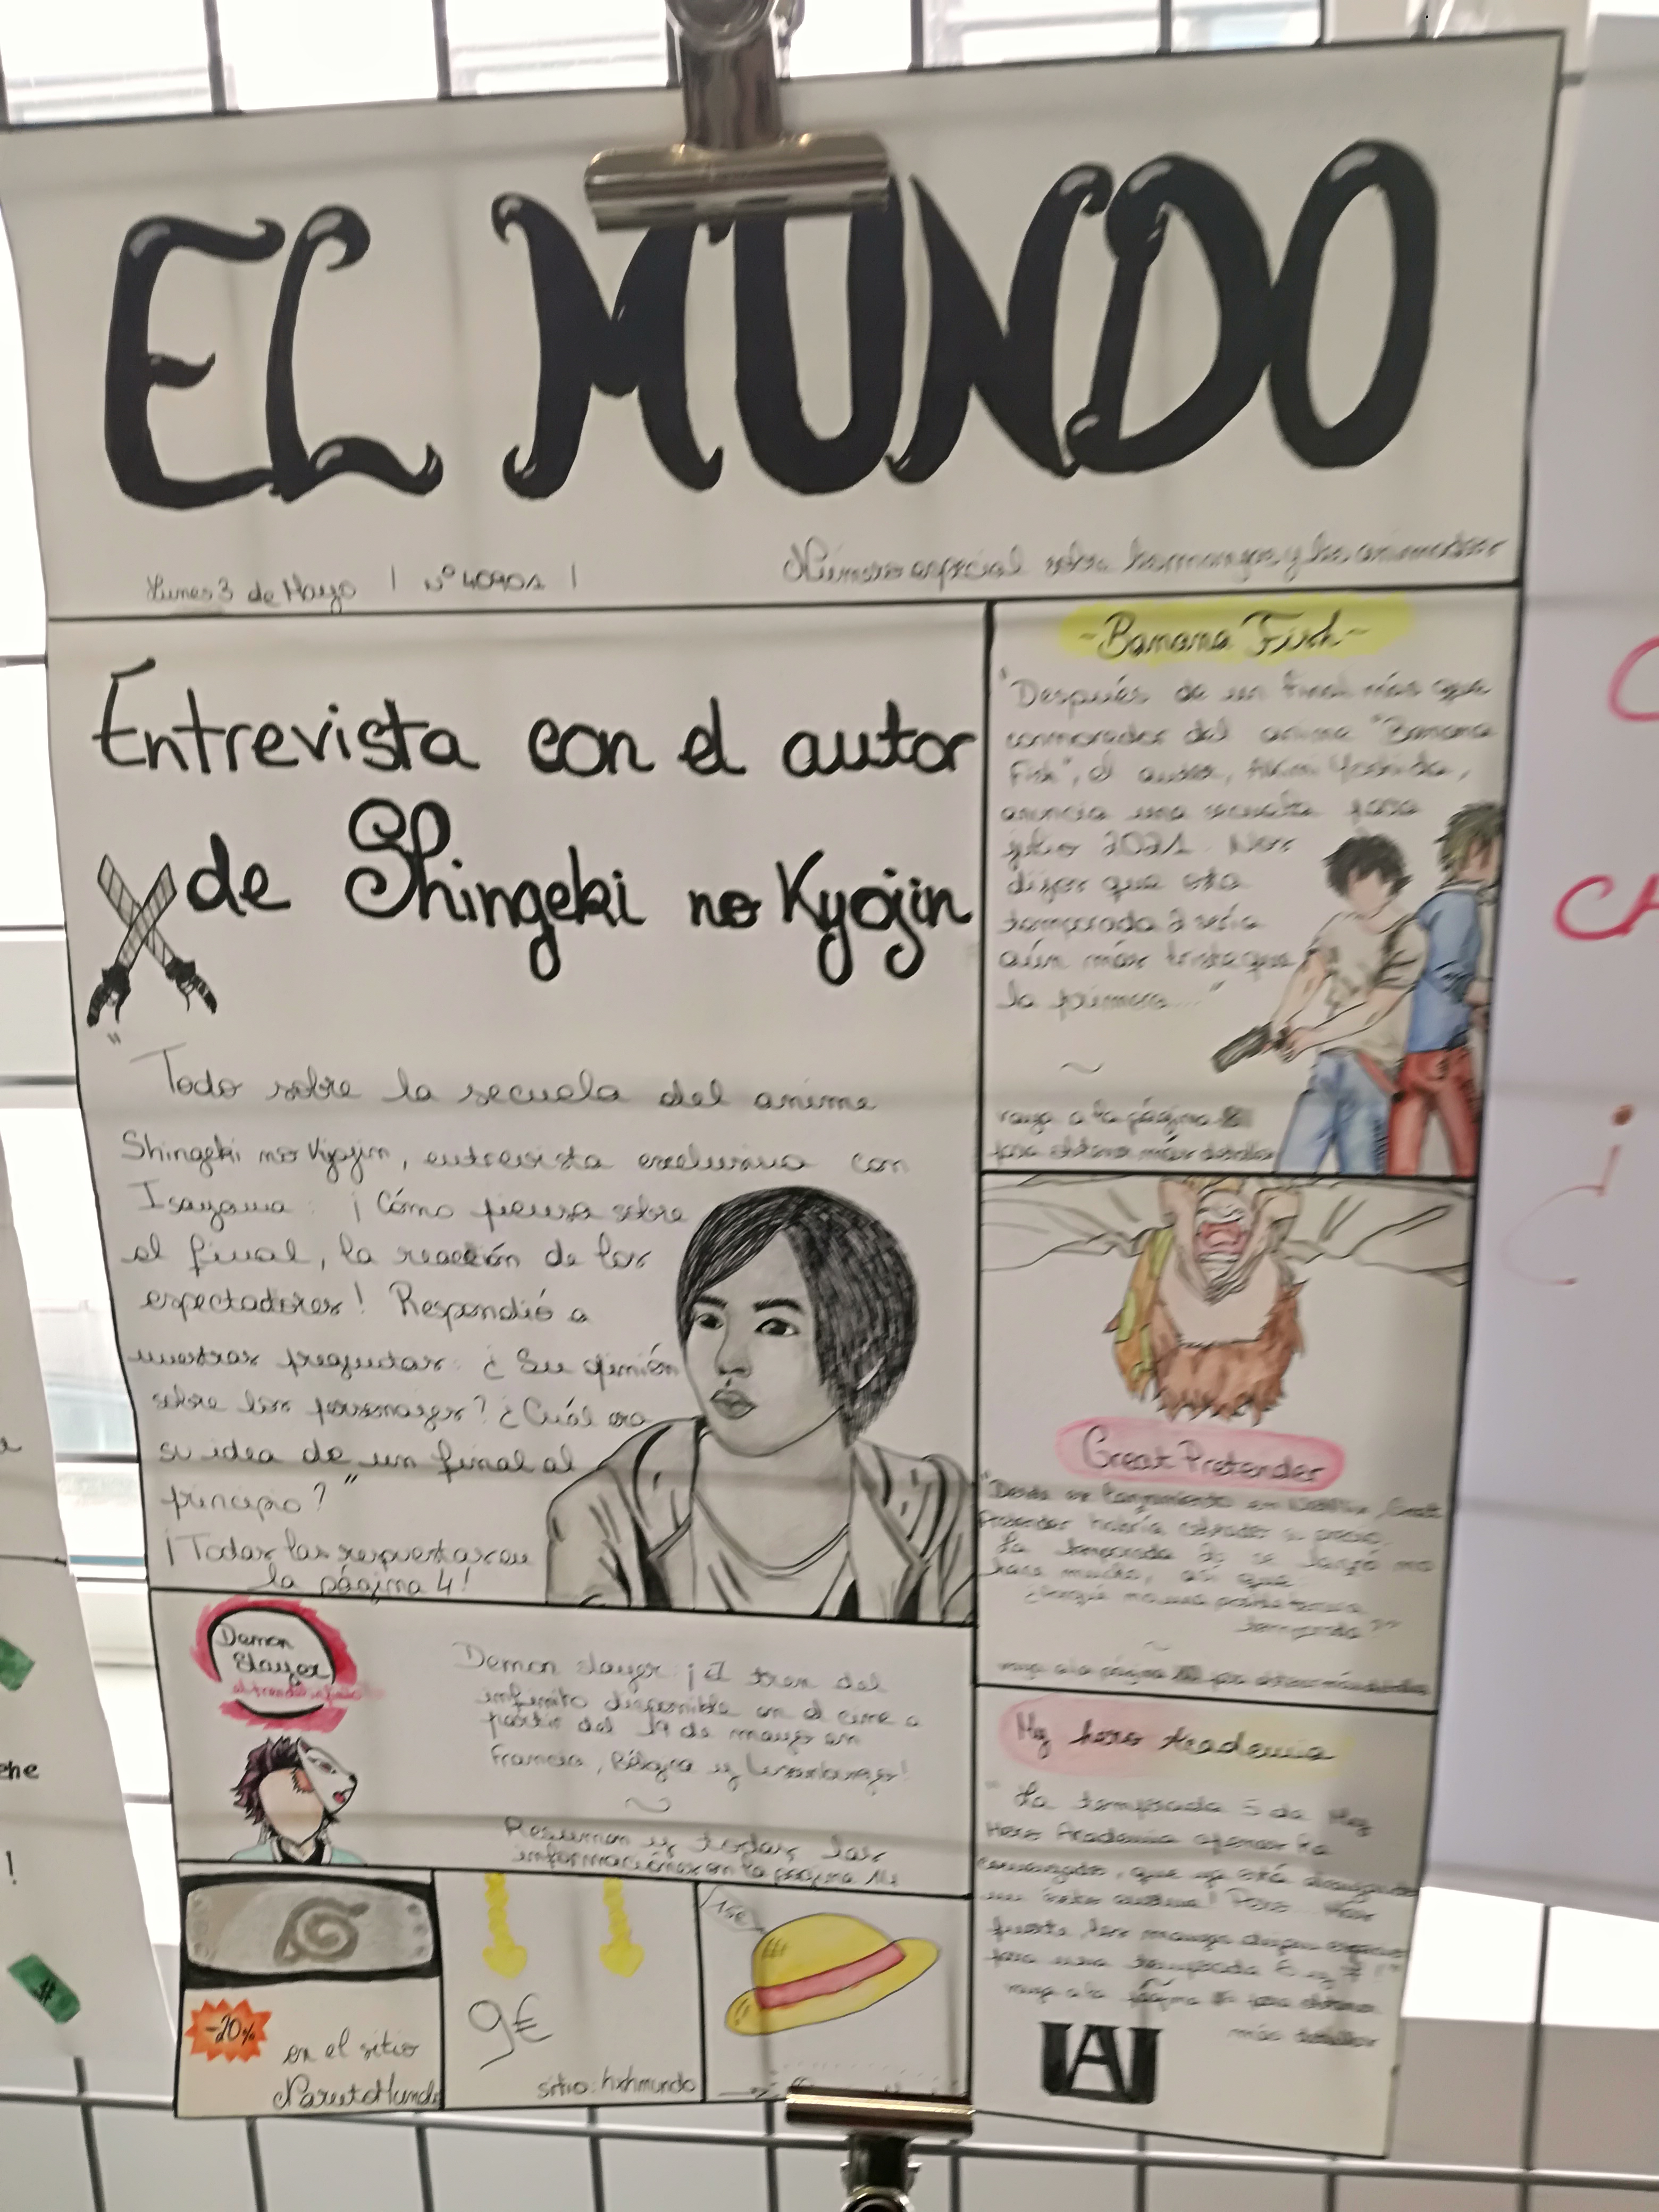 EL MUNDO
Lunes 3 de Mayo | nº 40901 |
Número especial sobre los mangas y los animados
Entrevista con el autor
de Shingeki no Kyojin
"Todo sobre la secuela del anime
Shingeki no Kyojin, entrevista exclusiva con
Isayama : ¡Cómo piensa sobre
el final, la reacción de los
espectadores! Respondió a
nuestras preguntas : ¿Su opinión
sobre los personajes? ¿Cuál era
su idea de un final al
principio?"
¡Todas las respuestas en
la página 4!
-Banana Fish-
"Después de un final más que
conmovedor del anime "Banana
Fish", el autor, Akimi Yoshida,
anuncia una secuela para
julio 2021. Nos
dijo que esta
temporada 2 sería
aún más triste que
la primera..."
vaya a la página
para obtener más detalles
Great Pretender
"Desde su lanzamiento en Netflix, Great
Pretender habría
La temporada 2 se lanzó no
hace mucho, así que
temporada?"
vaya a la página para obtener más detalles
My hero Academia
"La temporada 5 de My
Hero Academia apenas ha
comenzado, que ya está
un éxito Pero
los mangas
para una temporada 6 y 7!"
vaya a la página para obtener
más detalles
UA
Demon
Slayer
el tren del infinito
Demon slayer: ¡El tren del
infinito disponible en el cine a
partir del 19 de mayo en
Francia, Bélgica y Luxemburgo!
Resumen y todas las
informaciónes en la página 11
-20%
en el sitio
NarutoMundo
9€
sitio: hxhmundo
15€
C
CA
¿
ehe
!
#